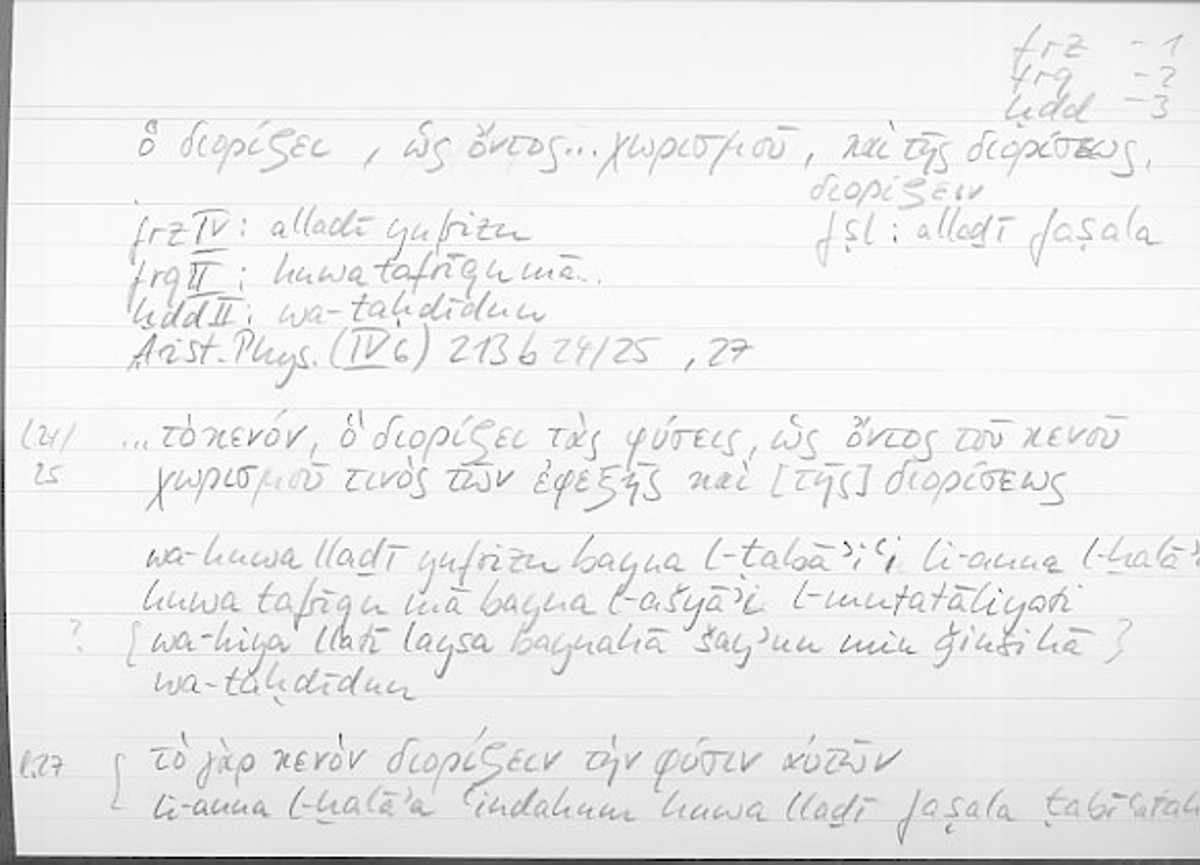 frz – 1
frq – 2
ḥdd – 3
ὃ διορίζει, ὡς ὄντος... χωρισμοῦ, καὶ τῆς διορίσεως,
διορίζειν
frz IV: alladī yufrizu
fṣl: allaḏī faṣala
frq II: huwa tafrīqu mā..
ḥdd II: wa-taḥdīdun
Arist. Phys. (IV 6) 213 b 24/25, 27
(24/ ... τὸ κενόν, ὃ διορίζει τὰς φύσεις, ὡς ὄντος τοῦ κενοῦ
25 χωρισμοῦ τινὸς τῶν ἐφεξῆς καὶ [τῆς] διορίσεως
wa-huwa lladī yufrizu bayna l-ṭabāʾiʿi li-anna l-ḫalāʾ
huwa tafrīqu mā bayna l-ašyāʾi l-mutatāliyati
? {wa-hiya llatī laysa baynahā šayʾun min ǧinsihā}
wa-taḥdīdun
l.27 { τὸ γὰρ κενὸν διορίζειν τὴν φύσιν αὐτῶν
li-anna l-ḫalāʾa ʿindahum huwa lladī faṣala ṭabīʿatah